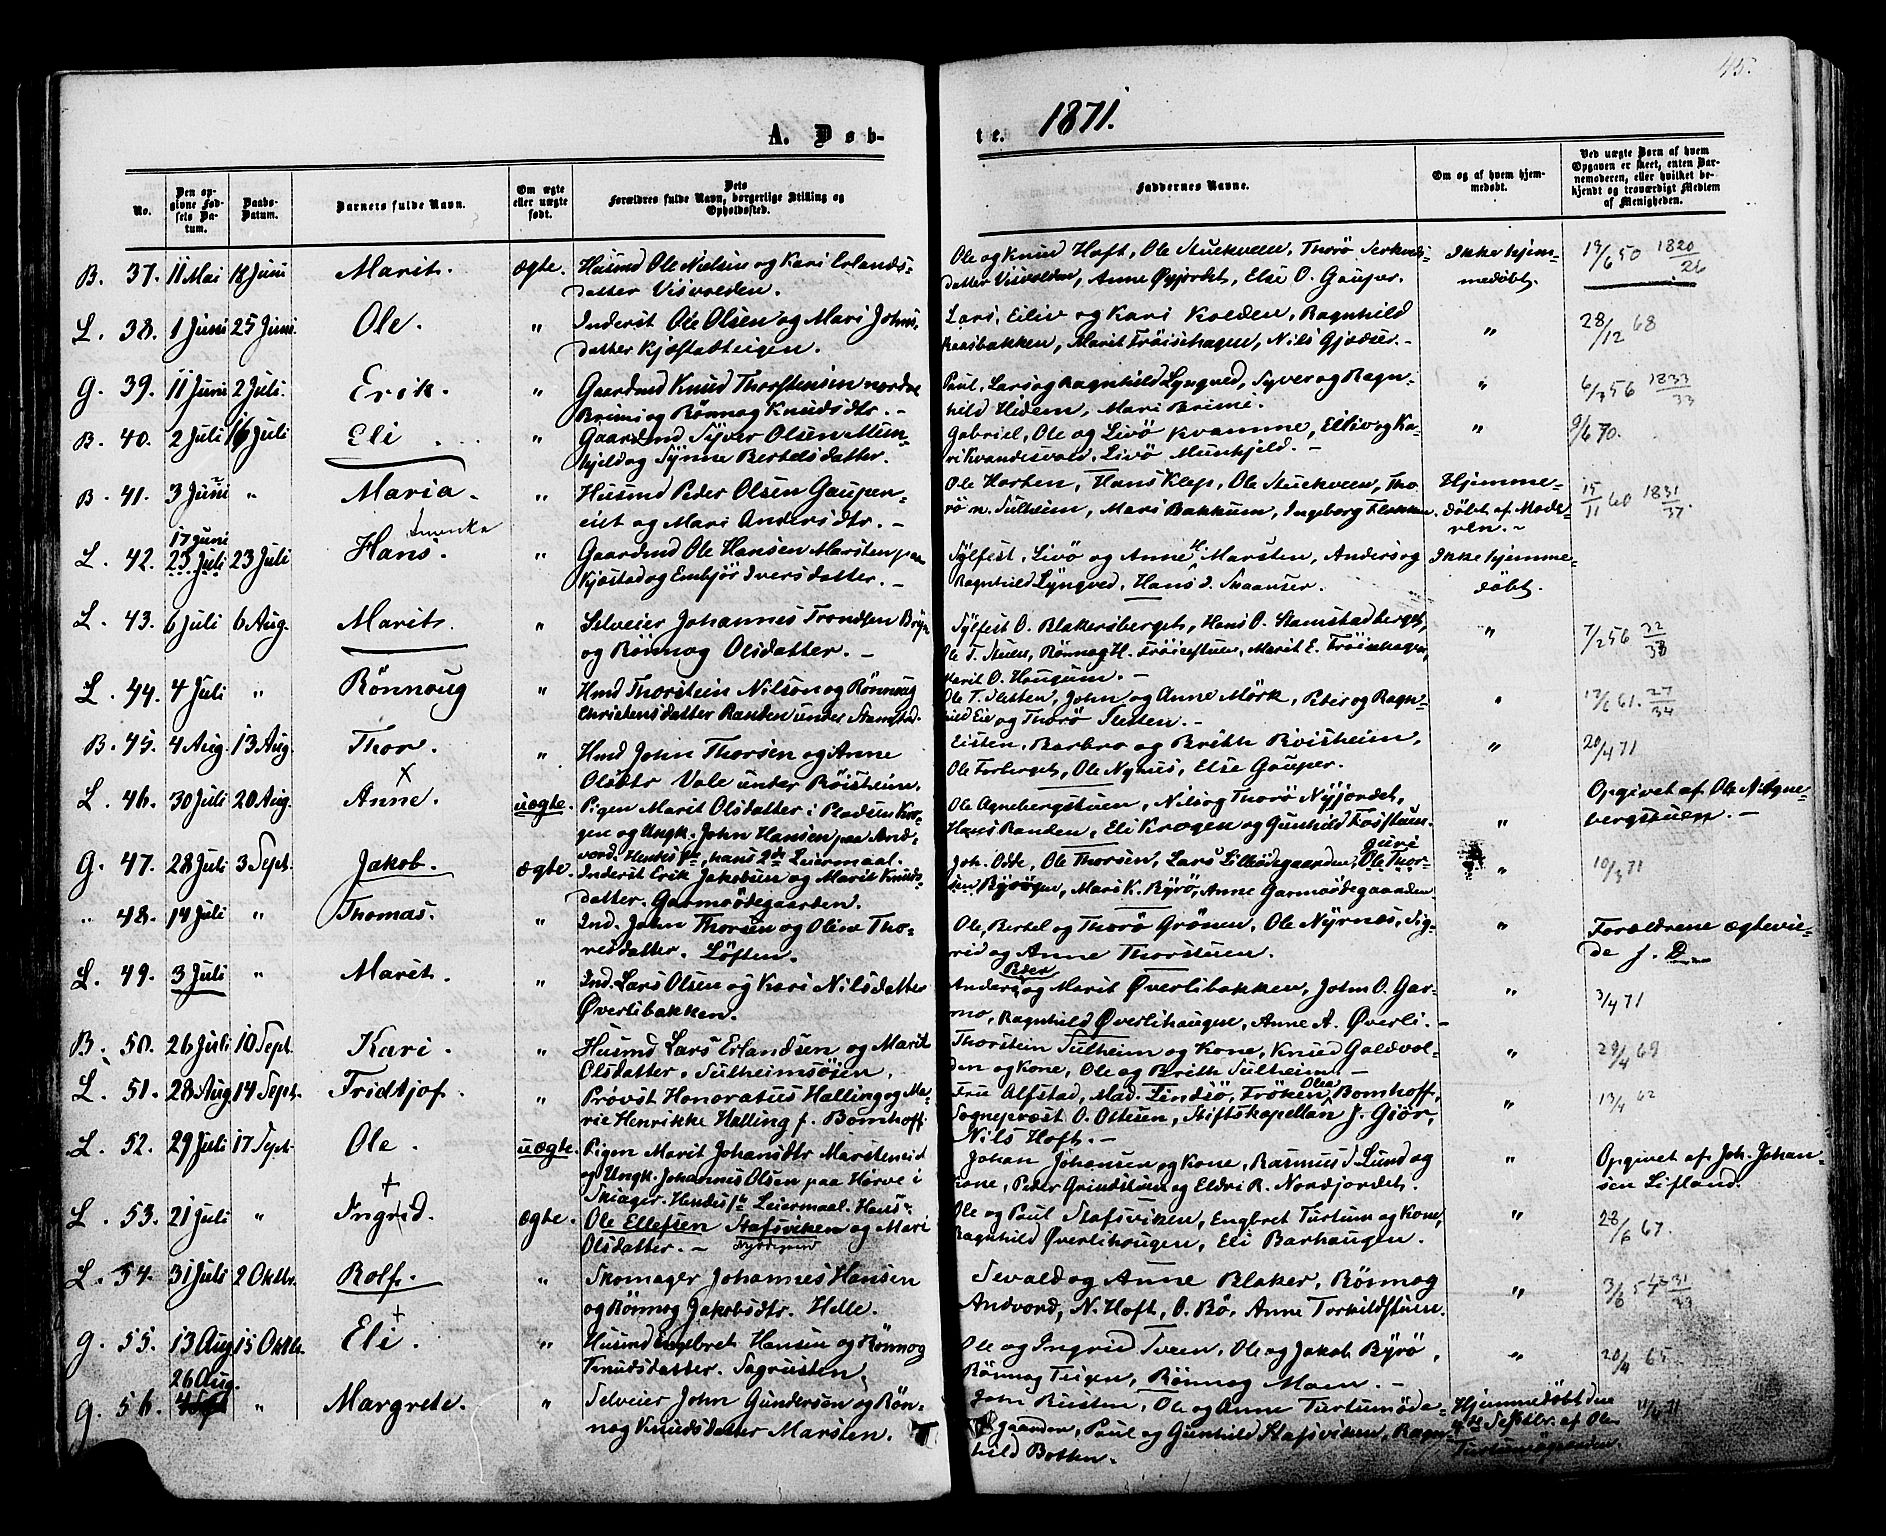 45.
A. Døb-
te. 1871.
No.
Den op-
givne Fød-
sels Da-
tum.
Daabs-
Datum.
Barnets fulde Navn.
Om ægte
eller uægte
født.
Dets
Forældres fulde Navn, borgerlige Stilling og
Opholdssted.
Faddernes Navne.
Om og af hvem hjem-
medøbt.
Ved uægte Børn af hvem
Opgaven er skeet, enten Bar-
nemoderen, eller hvilket be-
kjendt og troværdigt Medlem
af Menigheden.
B. 37. 11 Mai 18 Juni Marit. ægte. Husmd Ole Nielsen og Kari Erlands-
datter Visvolden.
Ole og Knud Hoft, Ole Stuekveen, Thorö
datter Visvolden, Anne Øygjordet, Else O. Gauper.
Ikke hjem-
medøbt.
19/6 50 1820/26
L. 38. 1 Juni 25 Juni. Ole. " Inderst Ole Olsen og Mari Johns-
datter Kjæstadteigen.
Lars, Eiliv og Kari Kolden, Ragnhild
bakken, Marit Fröisehagen, Nils Gjedser. -
" 28/12 68
G. 39. 11 Juni 2 Juli. Erik. " Gaardmd Knud Thorstensen nordre
Brimi og Rönnog Knudsdtr. -
Paul, Lars og Ragnhild Lyngved, Syver og Ragn-
hild Hidem, Mari Brimi.
" 6/3 56 1833/33
B. 40. 2 Juli 16 Juli Eli. " Gaardmd Syver Olsen Mun-
kjeld og Synne Bertelsdatter.
Gabriel, Ole og Livö Kvamme, Eiliv og Ka-
ri Kvandesvold, Livö Munkjeld. -
" 9/6 70.
B. 41. 3 Juni " Maria. " Husmd Peder Olsen Gauper-
eiet og Mari Andersdtr. -
Ole Horten, Hans Klep, Ole Stuekveen, Tho-
rö n. Sulheim, Mari Bakkum, Ingeborg Flekken.
Hjemme-
døbt af Mode-
ren. -
15/11 60 1831/37.
L. 42. 17 Juni
23 Juli 23 Juli Hans. " Gaardmd Ole Hansen Marsten paa
Kjæstad og Embjör Iversdatter. -
Sylfest, Livö og Anne H. Marsten, Anders og
Ragnhild Lyngved, Hans d. Skaanser.
Ikke hjemme-
døbt.
L. 43. 6 Juli 6 Aug. Marit. " Selveier Johannes Trondsen Bryn
og Rönnog Olsdatter. -
Sylfest O. Blakersberget, Hans O. Stamstadberget,
Ole T. Stuen, Rönnog H. Fröisestuen, Marit E. Fröisehagen,
Marit O. Haugum. -
" 7/2 56 32/38
L. 44. 4 Juli " Rönnoug " Hmd Thorstein Nilson og Rönnoug
Christensdatter Randen under Stamstad.
Ole T. Sletten, John og Anne Mörk, Peter og Ragn-
hild Eie og Thorö Sletten. -
" 12/6 61. 27/34
B. 45. 4 Aug. 13 Aug. Thor. " Hmd John Thorsen og Anne
Olsdtr Vole under Röisheim.
Eisten, Barbro og Brith Röisheim,
Ole Forberget, Ole Nyhus, Else Gauper.
" 20/4 71
L. 46. 30 Juli 20 Aug. Anne. uægte. Pigen Marit Olsdatter i Pladsen Kro-
gen og Ungk. John Hansen paa And-
vord. Hendes 1ste, hans 2det Leiermaal.
Ole Agnebergstuen, Nils og Thorö Nyjordet,
Hans Randen, Eli Krogen og Gunhild Fosstuen.
" Opgivet af Ole N. Agne-
bergstuen. -
G. 47. 28 Juli 3 Sept. Jakob. ægte. Inderst Erik Jakobsen og Marit Knuds-
datter. Garmoödegaarden.
Joh. Odde, Ole Thorsen, Lars Lilleödegaarden, Guri
Ole Thor-
sen Byrögen, Mari K. Byrö, Anne Garmoödegaarden
" 10/3 71
" 48. 14 Juli " Thomas. " Ind. John Thorsen og Oline Tho-
resdatter. Løften.
Ole, Bertel og Thorö Grönen, Ole Nyrnæs, Sig-
rid og Anne Thorstuen.
" Forældrene ægtevie-
de f. D.
L. 49. 3 Juli " Marit. " Ind. Lars Olsen og Kari Nilsdatter
Øverlibakken.
Anders, Peder og Marit Øverlibakken, John O. Gar-
mo, Ragnhild Øverlihaugen, Anne A. Øverli. -
" 3/4 71
B. 50. 26 Juli 10 Sept. Kari. " Husmd Lars Erlandsen og Marit
Olsdatter. Sulheimsösen.
Thorstein Sulheim og Kone, Knud Galdvol-
den og Kone, Ole og Brith Sulheim. -
" 29/4 69
L. 51. 28 Aug. 14 Sept. Fridtjof. " Provst Honoratus Halling og Ma-
rie Henrikke Halling f. Bomhoff
Fru Alfstad, Mad. Lindsö, Fröken Olea Bomhoff,
Sognepræst O. Ottesen, Stiftskapellan J. Giör,
Nils Hoft. -
" 13/4 62
L. 52. 29 Juli 17 Sept. Ole. uægte. Pigen Marit Johansdtr Marsteneiet
og Ungk. Johannes Olsen paa Hörve i
Skiager. Hendes 1ste Leiermaal. Hans "
Johan Johansen og Kone, Rasmus Lund og
Kone, Peder Grindstuen og Eldri R. Nordjordet.
" Opgivet af Joh. Johan-
sen Lifland.
L. 53. 21 Juli " Ingrid. ægte. Ole Ellefsen Stafsviken og Mari
Olsdatter. -
Ole og Paul Stafsviken, Engbret Turtum og Kone,
Ragnhild Øverlihaugen, Eli Barhaugen.
" 28/6 67.
L. 54. 31 Juli 2 Oktbr. Rolf. " Skomager Johannes Hansen
og Rönnog Jakobsdtr. Helle.
Sevald og Anne Blaker, Rönnog
Andvord, N. Hoft, O. Bö, Anne Torkildstuen.
" 3/6 57 31/33
G. 55. 13 Aug. 15 Oktbr. Eli. " Husmd Engbret Hansen og Rönnog
Knudsdatter. Sagrusten.
Ole og Ingrid Sveen, Ole og Jakob Byrö,
Rönnog Teigen, Rönnog Moen. -
" 20/4 65
G. 56. 26 Aug.
" Margrete. " Selveier John Gundersen og Rön-
nog Knudsdatter Marsten.
John Rusten, Ole og Anne Turtumöde-
gaarden, Paul og Gunhild Stafsviken, Ragn-
hild Botten.
Hjemmedøbt den
4de Septbr. af Ole
Turtumögaarden.
11/4 71